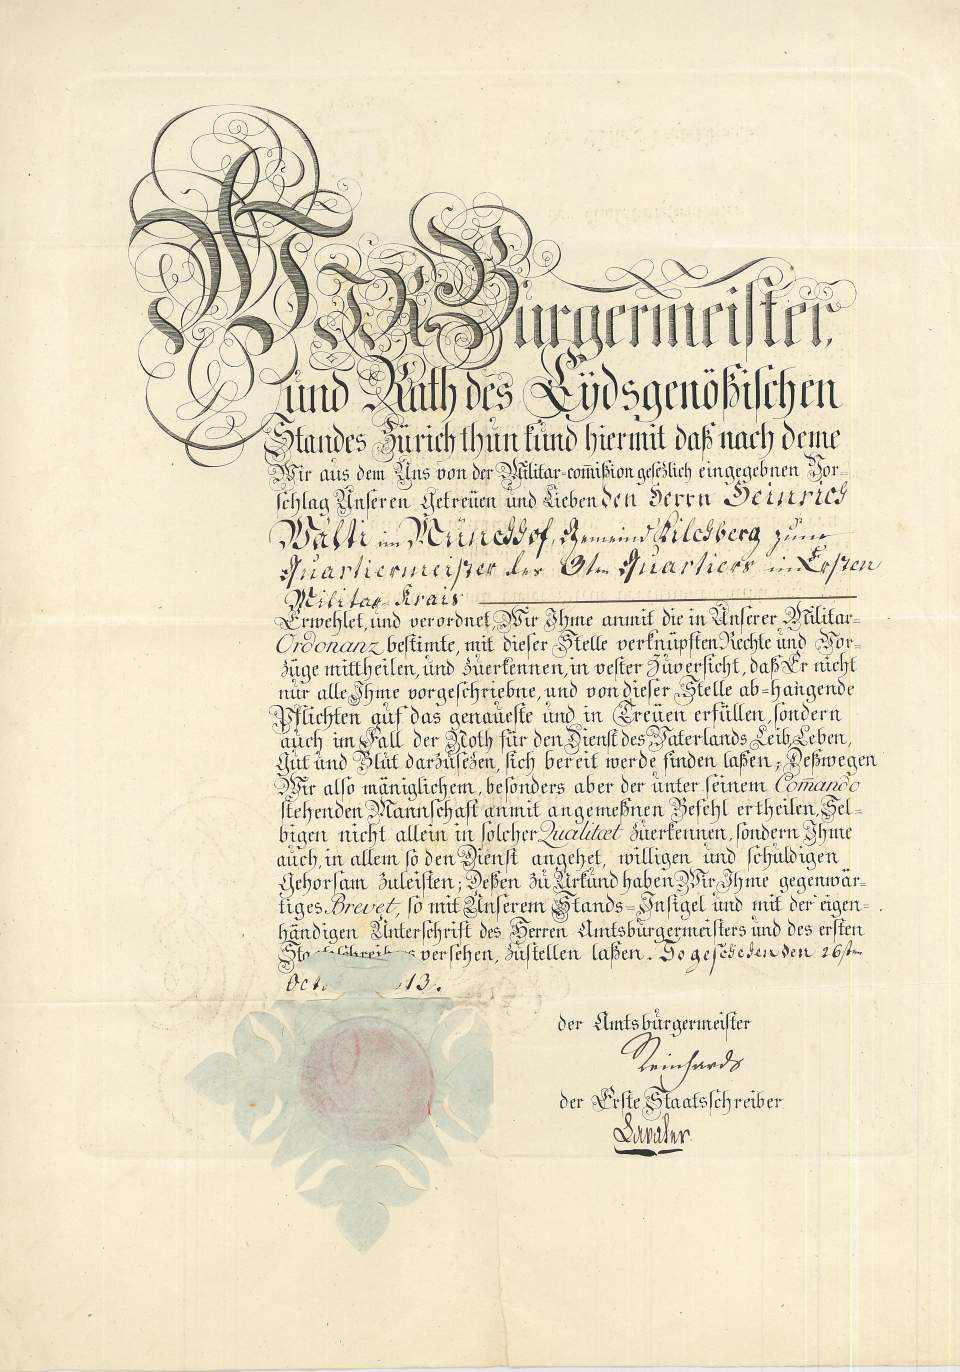 WIR Burgermeister,
und Rath des Eÿdsgenößischen
Standes Zürich thun kund hiermit daß nach deme
Wir aus dem Uns von der Militar-com̅ißion gesezlich eingegebnen Vor=
schlag Unseren Getreüen und Lieben den Herrn Heinrich
Wälti im Müncħhof, Gemeind Kilchberg zum
Quartiermeister des 3ten Quartiers im Ersten
Militar-Krais
Erwehlet, und verordnet, Wir Ihme anmit die in Unserer Militar-
Ordonanz bestimte, mit dieser Stelle verknüpften Rechte und Vor=
züge mittheilen, und züerkennen, in vester Züversicht, daß Er nicht
nür alle Ihme vorgeschriebne, und von dieser Stelle ab=hangende
Pflichten auf das genaueste und in Treüen erfüllen, sondern
auch im Fall der Noth für den Dienst des Vaterlands Leib, Leben,
Güt und Blüt darzüsezen, sich bereit werde finden laßen; Deßwegen
Wir also mäniglichem, besonders aber der unter seinem Com̅ando
stehenden Mannschaft anmit angemeßnen Befehl ertheilen, Sel=
bigen nicht allein in solcher Qualitæt züerkennen, sondern Ihme
auch, in allem so den Dienst angehet, willigen und schüldigen
Gehorsam zuleisten; Deßen zü Urkünd haben Wir Ihme gegenwär=
tiges Brevet, so mit Unserem Stands=Insigel und mit der eigen=
händigen Unterschrift des Herren Amtsbürgermeisters und des ersten
Staatsschreibers versehen, züstellen laßen. So gescheħen den 26sten
13.
der Amtsbürgermeister
Reinhard
der Erste Staatsschreiber
Lavater.